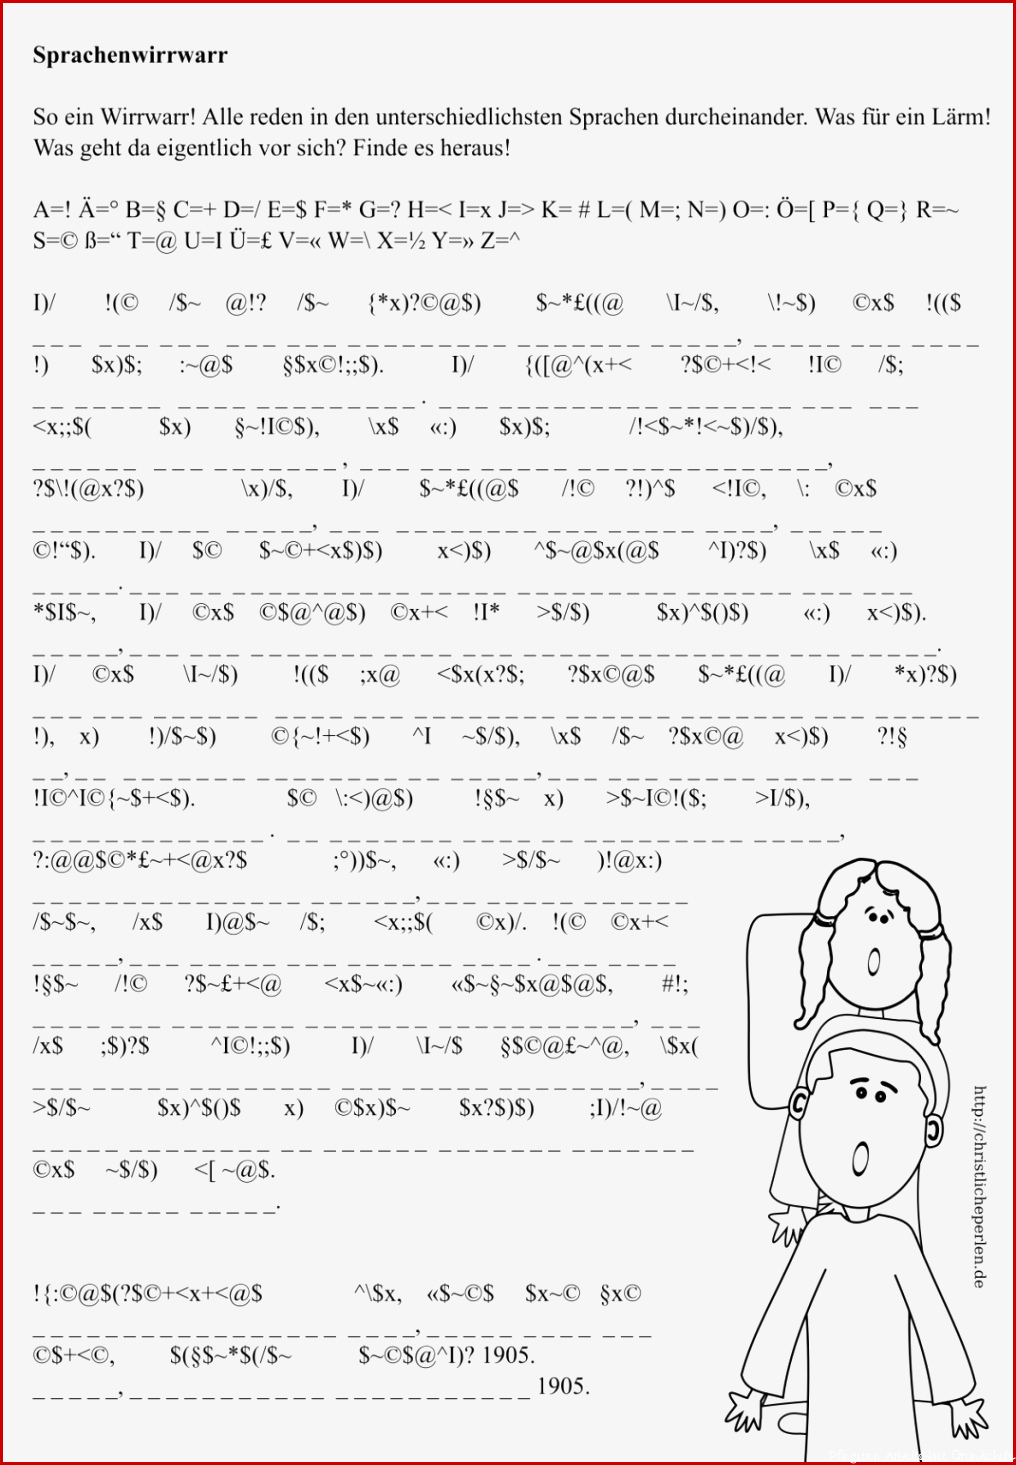 Sprachenwirrwarr
So ein Wirrwarr! Alle reden in den unterschiedlichsten Sprachen durcheinander. Was für ein Lärm!
Was geht da eigentlich vor sich? Finde es heraus!
A=! Ä=° B=§ C=+ D=/ E=$ F=* G=? H=< I=x J=> K= # L=( M=; N=) O=: Ö=[ P={ Q=} R=~
S=© ß=“ T=@ U=I Ü=£ V=« W=\ X=½ Y=» Z=^
I)/ !(© /$~ @!? /$~ {*x)?©@$) $~*£((@ \I~/$, \!~$) ©x$ !(($
_ _ _ _ _ _ _ _ _ _ _ _ _ _ _ _ _ _ _ _ _ _ _ _ _ _ _ _ _ _ _ _ _ _ _ _ _, _ _ _ _ _ _ _ _ _ _ _ _
!) $x)$; :~@$ §$x©!;;$). I)/ {([@^(x+< ?$©+<!< !I© /$;
_ _ _ _ _ _ _ _ _ _ _ _ _ _ _ _ _ _ _ _ . _ _ _ _ _ _ _ _ _ _ _ _ _ _ _ _ _ _ _ _ _ _ _ _ _
<x;;$( $x) §~!I©$), \x$ «:) $x)$; /!<$~*!<~$)/$),
_ _ _ _ _ _ _ _ _ _ _ _ _ _ _ _, _ _ _ _ _ _ _ _ _ _ _ _ _ _ _ _ _ _ _ _ _ _ _ _ _ _,
?$\!(@x?$) \x)/$, I)/ $~*£((@$ /!© ?!)^$ <!I©, \: ©x$
_ _ _ _ _ _ _ _ _ _ _ _ _ _ _, _ _ _ _ _ _ _ _ _ _ _ _ _ _ _ _ _ _ _ _ _ _ _, _ _ _ _ _
©!“$). I)/ $© $~©+<x$)$) x<)$) ^$~@$x(@$ ^I)?$) \x$ «:)
_ _ _ _ _. _ _ _ _ _ _ _ _ _ _ _ _ _ _ _ _ _ _ _ _ _ _ _ _ _ _ _ _ _ _ _ _ _ _ _ _ _ _ _ _
*$I$~, I)/ ©x$ ©$@^@$) ©x+< !I* >$/$) $x)^$()$) «:) x<)$).
_ _ _ _ _, _ _ _ _ _ _ _ _ _ _ _ _ _ _ _ _ _ _ _ _ _ _ _ _ _ _ _ _ _ _ _ _ _ _ _ _ _ _ _ _ _.
I)/ ©x$ \I~/$) !(($ ;x@ <$x(x?$; ?$x©@$ $~*£((@ I)/ *x)?$)
_ _ _ _ _ _ _ _ _ _ _ _ _ _ _ _ _ _ _ _ _ _ _ _ _ _ _ _ _ _ _ _ _ _ _ _ _ _ _ _ _ _ _ _ _ _ _ _ _
!), x) !)/$~$) ©{~!+<$) ^I ~$/$), \x$ /$~ ?$x©@ x<)$) ?!§
_ _, _ _ _ _ _ _ _ _ _ _ _ _ _ _ _ _ _ _ _ _ _ _ _, _ _ _ _ _ _ _ _ _ _ _ _ _ _ _ _ _ _ _
!I©^I©{~$+<$). $© \:<)@$) !§$~ x) >$~I©!($; >I/$),
_ _ _ _ _ _ _ _ _ _ _ _ _ . _ _ _ _ _ _ _ _ _ _ _ _ _ _ _ _ _ _ _ _ _ _ _ _ _ _,
?:@@$©*£~+<@x?$ ;°))$~, «:) >$/$~ )!@x:)
_ _ _ _ _ _ _ _ _ _ _ _ _ _ _ _ _ _ _ _ _, _ _ _ _ _ _ _ _ _ _ _ _ _ _
/$~$~, /x$ I)@$~ /$; <x;;$( ©x)/. !(© ©x+<
_ _ _ _ _, _ _ _ _ _ _ _ _ _ _ _ _ _ _ _ _ _ _ _. _ _ _ _ _ _ _
!§$~ /!© ?$~£+<@ <x$~«:) «$~§~$x@$@$, #!;
_ _ _ _ _ _ _ _ _ _ _ _ _ _ _ _ _ _ _ _ _ _ _ _ _ _ _ _ _ _ _ _ _, _ _ _
/x$ ;$)?$ ^I©!;;$) I)/ \I~/$ §$©@£~^@, \$x(
_ _ _ _ _ _ _ _ _ _ _ _ _ _ _ _ _ _ _ _ _ _ _ _ _ _ _ _ _ _ _ _, _ _ _ _
>$/$~ $x)^$()$ x) ©$x)$~ $x?$)$) ;I)/!~@
_ _ _ _ _ _ _ _ _ _ _ _ _ _ _ _ _ _ _ _ _ _ _ _ _ _ _ _ _ _ _ _ _ _ _
©x$ ~$/$) <[ ~@$.
_ _ _ _ _ _ _ _ _ _ _ _ _.
!{:©@$(?$©+<x+<@$ ^\$x, «$~©$ $x~© §x©
_ _ _ _ _ _ _ _ _ _ _ _ _ _ _ _ _ _ _ _ _, _ _ _ _ _ _ _ _ _ _ _ _
©$+<©, $(§$~*$(/$~ $~©$@^I)? 1905.
_ _ _ _ _, _ _ _ _ _ _ _ _ _ _ _ _ _ _ _ _ _ _ 1905.
http://christlicheperlen.de